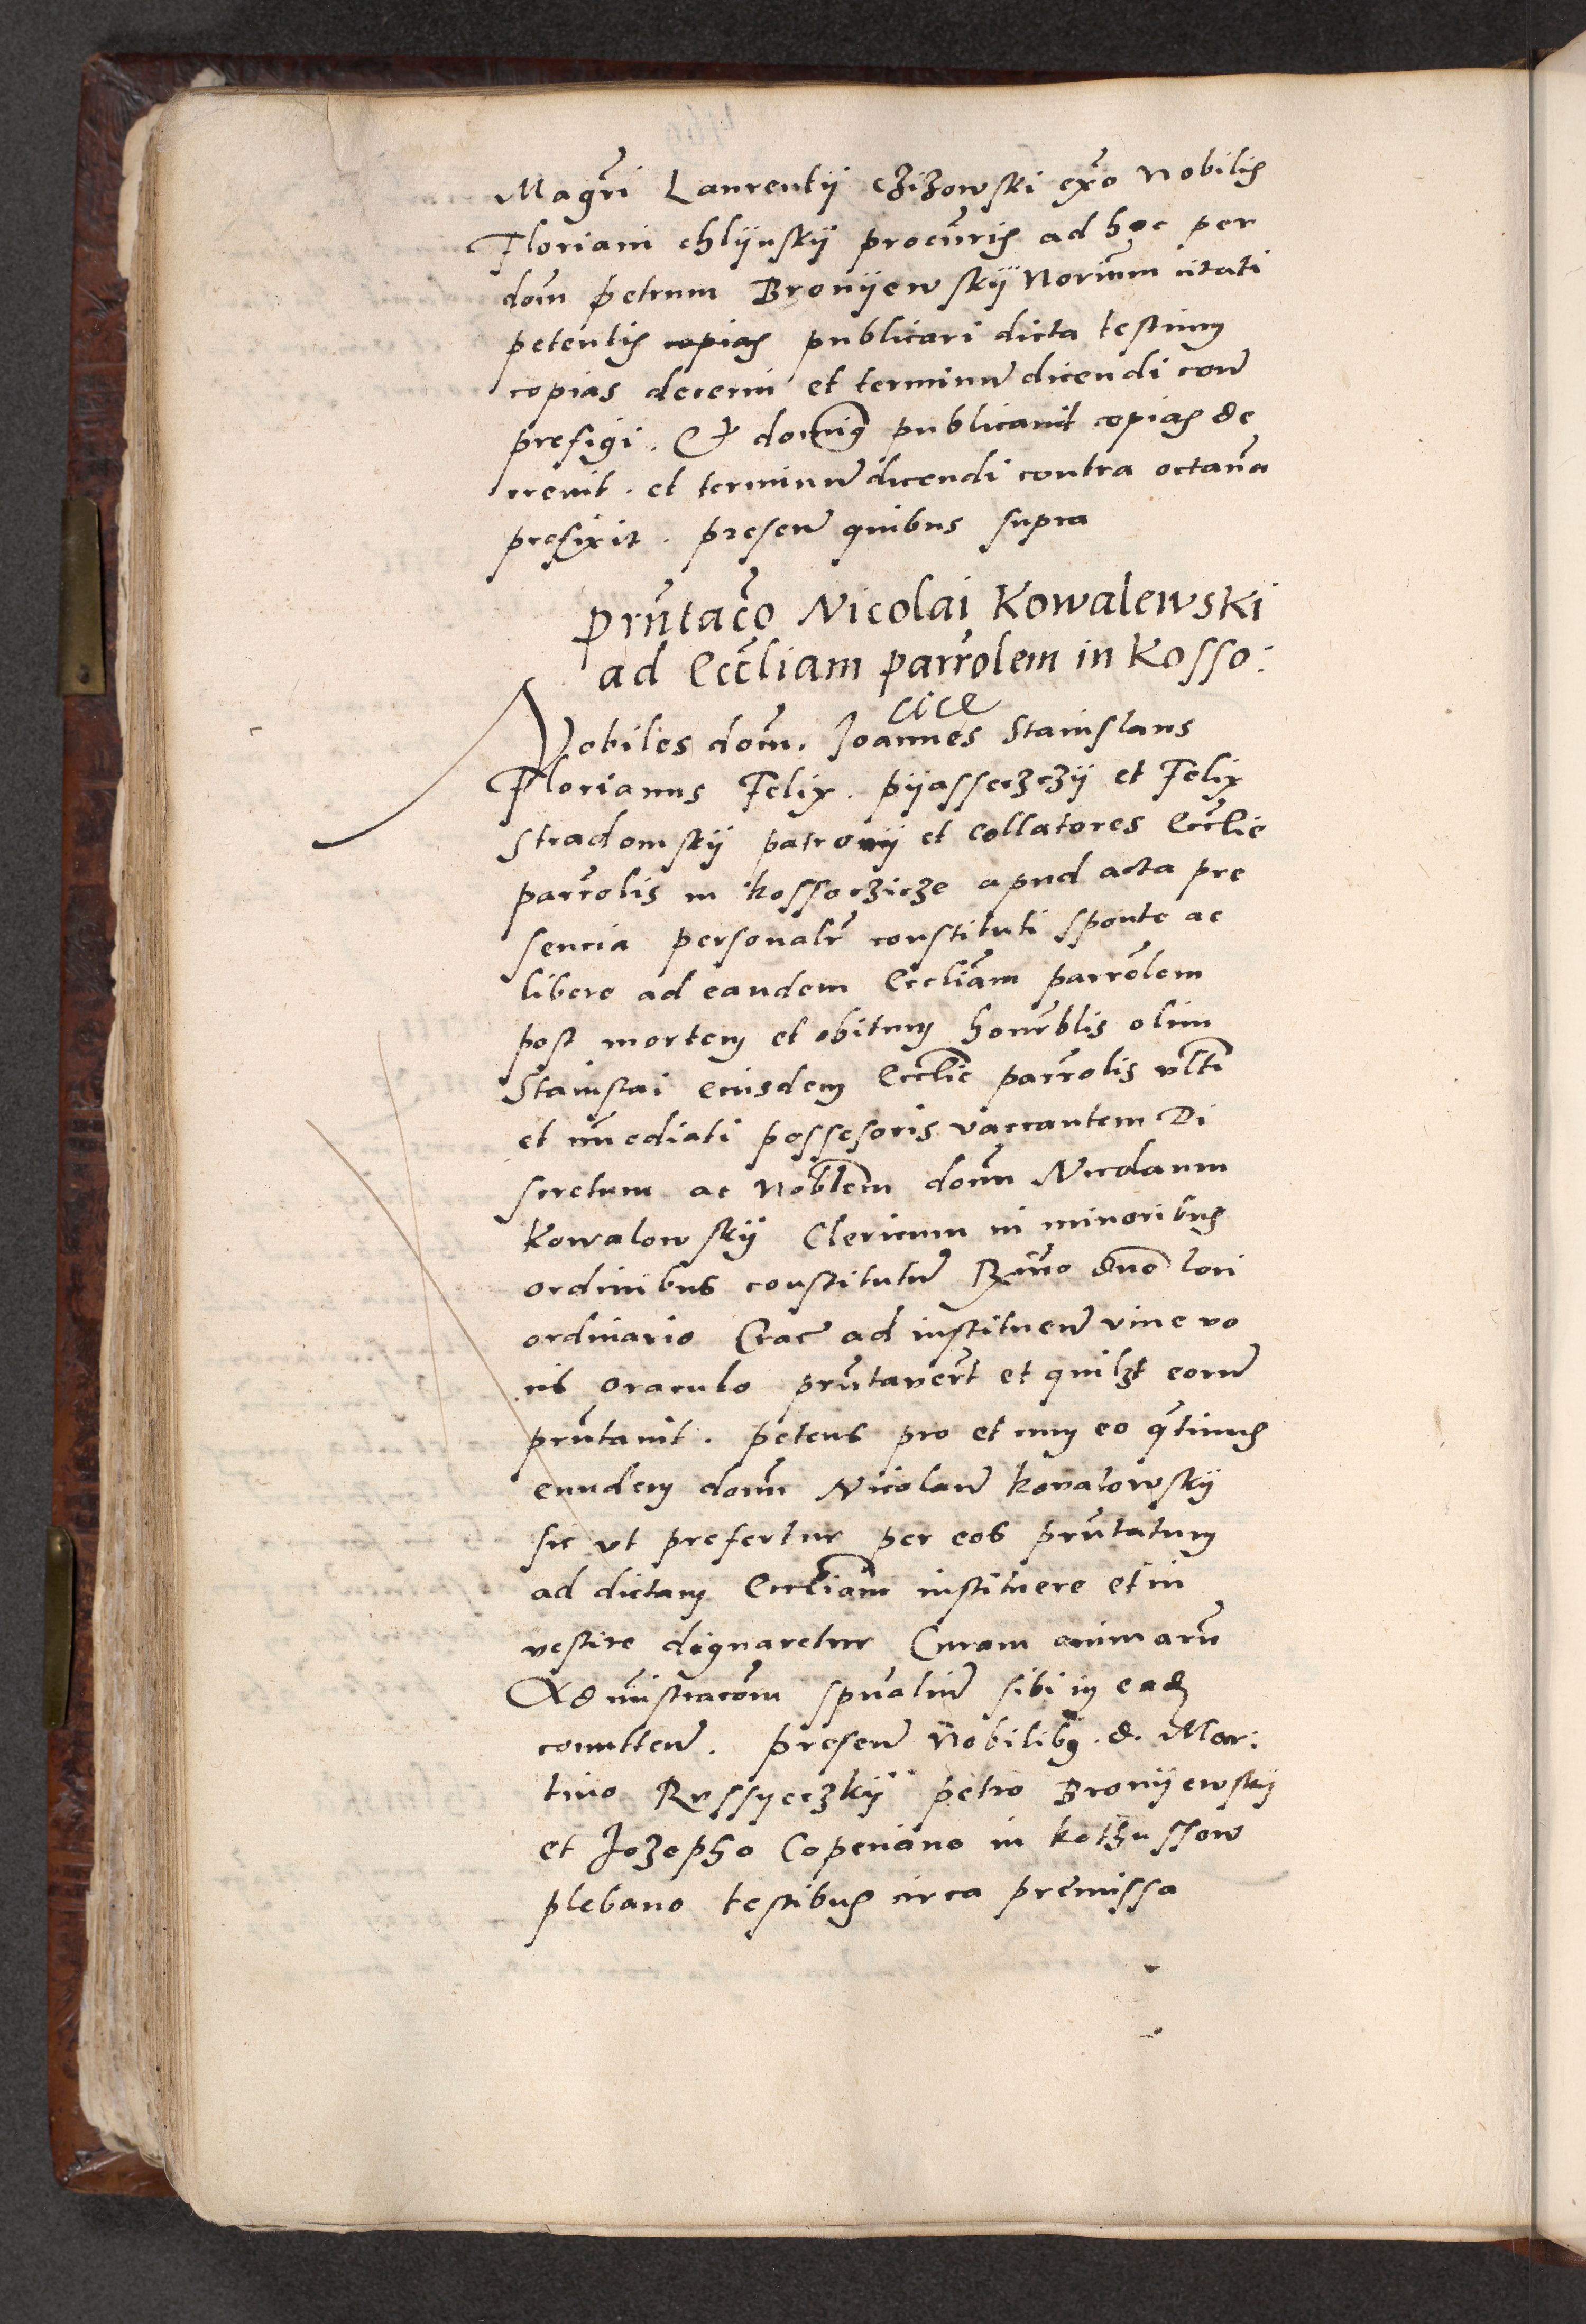 Magr̃i Laurentij cziʒowski ex͠o Nobilis
Floriani chlijnskÿ procũris ad hoc per
dom̃ petrum Bronÿewskÿ Noriũm citati
petentis copias publicari dicta testium
copias decerni et terminũ dicendi con̄
prefigi. Et dominꝰ publicauit copias de
creuit. et terminũ dicendi contra octaũa
prefixit. presen̄ quibus supra
Prñtac̃o Nicolai Kowalewski
ad Eccl̃iam parr̃olem in Kosso:
cice
Nobiles dom̃. Joannes Stanislaus
Florianus Felix. pÿasseczczÿ et Felix
Stradomskÿ patronÿ et collatores Eccl̃ie
parr̃olis in kossoczicze apud acta pre
sencia personalr̃ constituti sponte ac
libere ad eandem Eccl̃iam parr̃olem
post mortem et obitum honor̃blis olim
Stanislai eiusdem Eccl̃ie parr̃olis vlt̃i
et im̃ediati possesoris vaccantem Di
scretum ac Nobl̃em dom̃ Nicolaum
Kowalowskÿ Clericum in minoribus
ordinibus constitutũ R̃mo dño loci
ordinario Crac̃ ad instituen̄ viue vo
cis oraculo prñtauerũt et quilꝫt eorũ
prñtauit. petens pro et cum eo q̃tinus
eundem dom̃ Nicolaũ kovalowskÿ
sic vt prefertur per eos prñtatum
ad dictam Eccl̃iam instituere et in
vestire dignaretur Curam animarũ
Ad m̃istracõm spũaliũ sibi in eadẽ
comitten̄. presen̄ Nobilibꝰ. d. Mar:
tino Russyeczkÿ petro Bronÿewskÿ
et Joʒepho Coperiano in kothussow
plebano testibus circa premissa